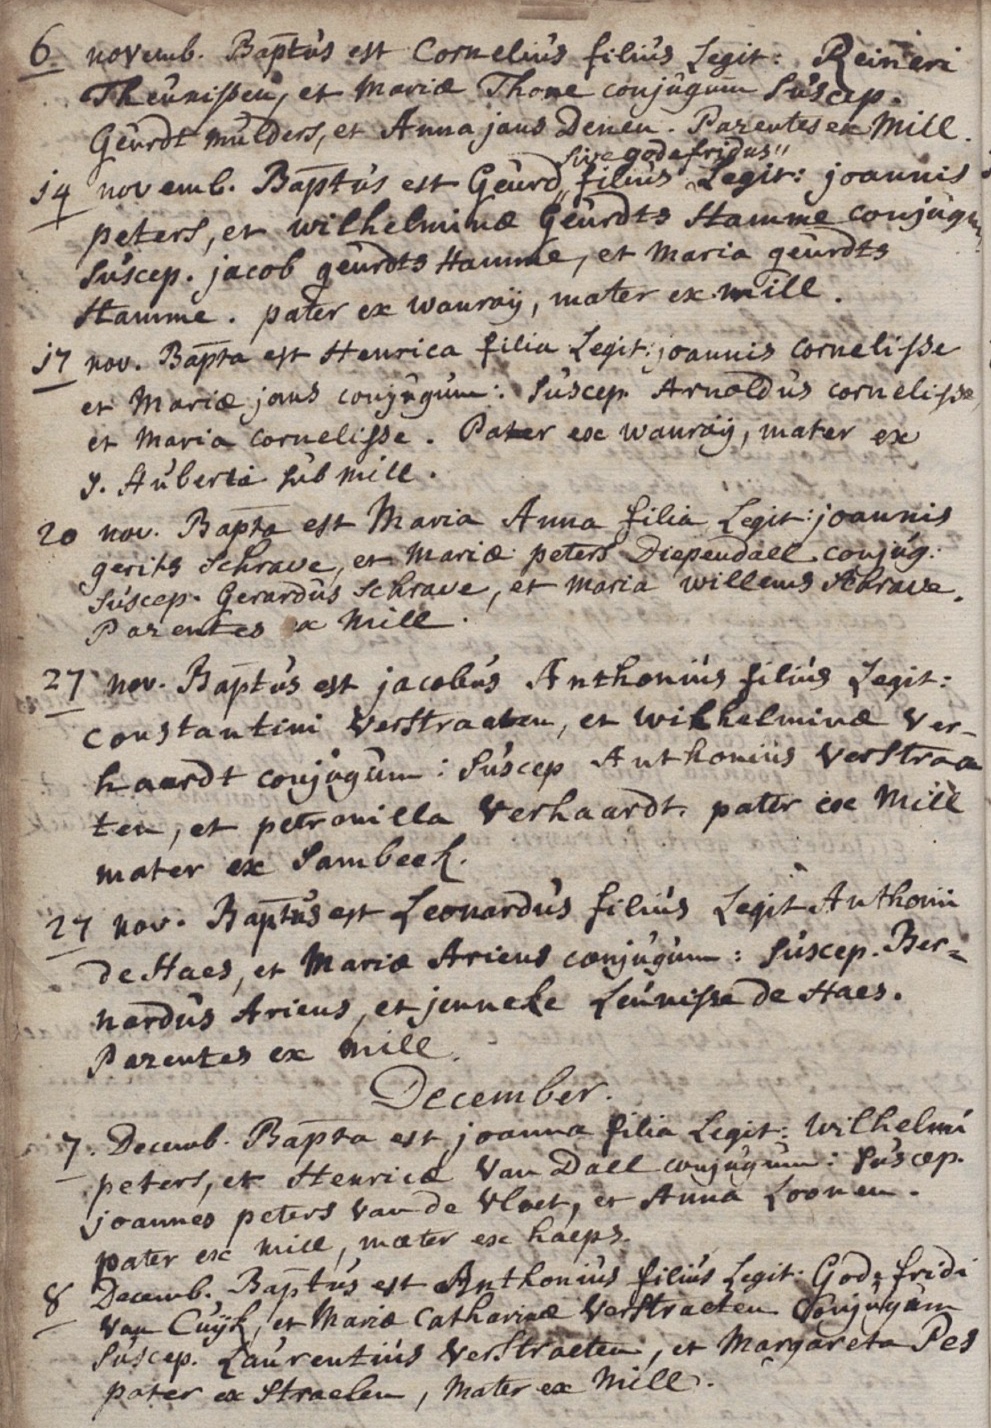 6 novemb. Baptus est Cornelius filius Legit: Reineri
Theunissen, et Mariæ Thone conjugum Suscep.
Geurdt Mulders, et Anna jans Denen. Parentes ex Mill.
sive godefridus"
14 novemb. Baptus est Geurd" filius Legit: joannis
peters, et wilhelminæ Geurdts Hamme conjugu
Suscep. jacob geurdts Hamme, et Maria geurdts
Hamme. pater ex wanraÿ, mater ex mill.
17 nov. Bapta est Henrica filia Legit: joannis cornelisse
et Mariæ jans conjugum: Suscep. Arnoldus cornelisse
et Maria cornelisse. Pater ex wanraÿ, mater ex
S. Huberti sub mill.
20 nov. Bapta est Maria Anna filia Legit: joannis
gerits Schrave, et Mariæ peters Diependael conjug:
Suscep. Gerardus Schrave, et Maria willems Schrave.
Parentes ex Mill.
27 nov. Baptus est jacobus Anthonius filius Legit:
constantini Verstraeten, et wilhelminæ Ver-
haardt conjugum: Suscep Anthonius Verstraa
ten, et petronilla Verhaardt. pater ex Mill
mater ex Sambeek.
27 nov. Baptus est Leonardus filius Legit Anthonii
de Haes, et Mariæ Ariens conjugum: Suscep. Ber=
nardus Ariens, et jenneke Leunisse de Haes.
Parentes ex Mill.
December.
7. Decemb. Bapta est joanna filia Legit: Wilhelmi
peters, et Henricæ Van Dall conjugum: Suscep.
joannes peters van de Vloet, et Anna Loonen.
pater ex Mill, mater ex haeps.
8 Decemb. Baptus est Anthonius filius Legit: God=fridi
Van Cuÿk, et Mariæ Catharinæ Verstraeten Conjugum
Suscep. Laurentius Verstraeten, et Margareta Pes
pater ex Straelen, Mater ex Mill.